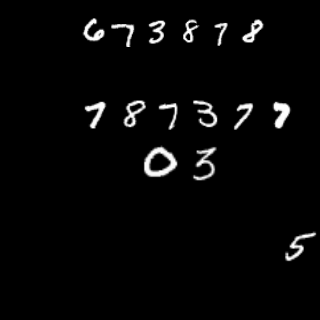 673878
787377
03
5